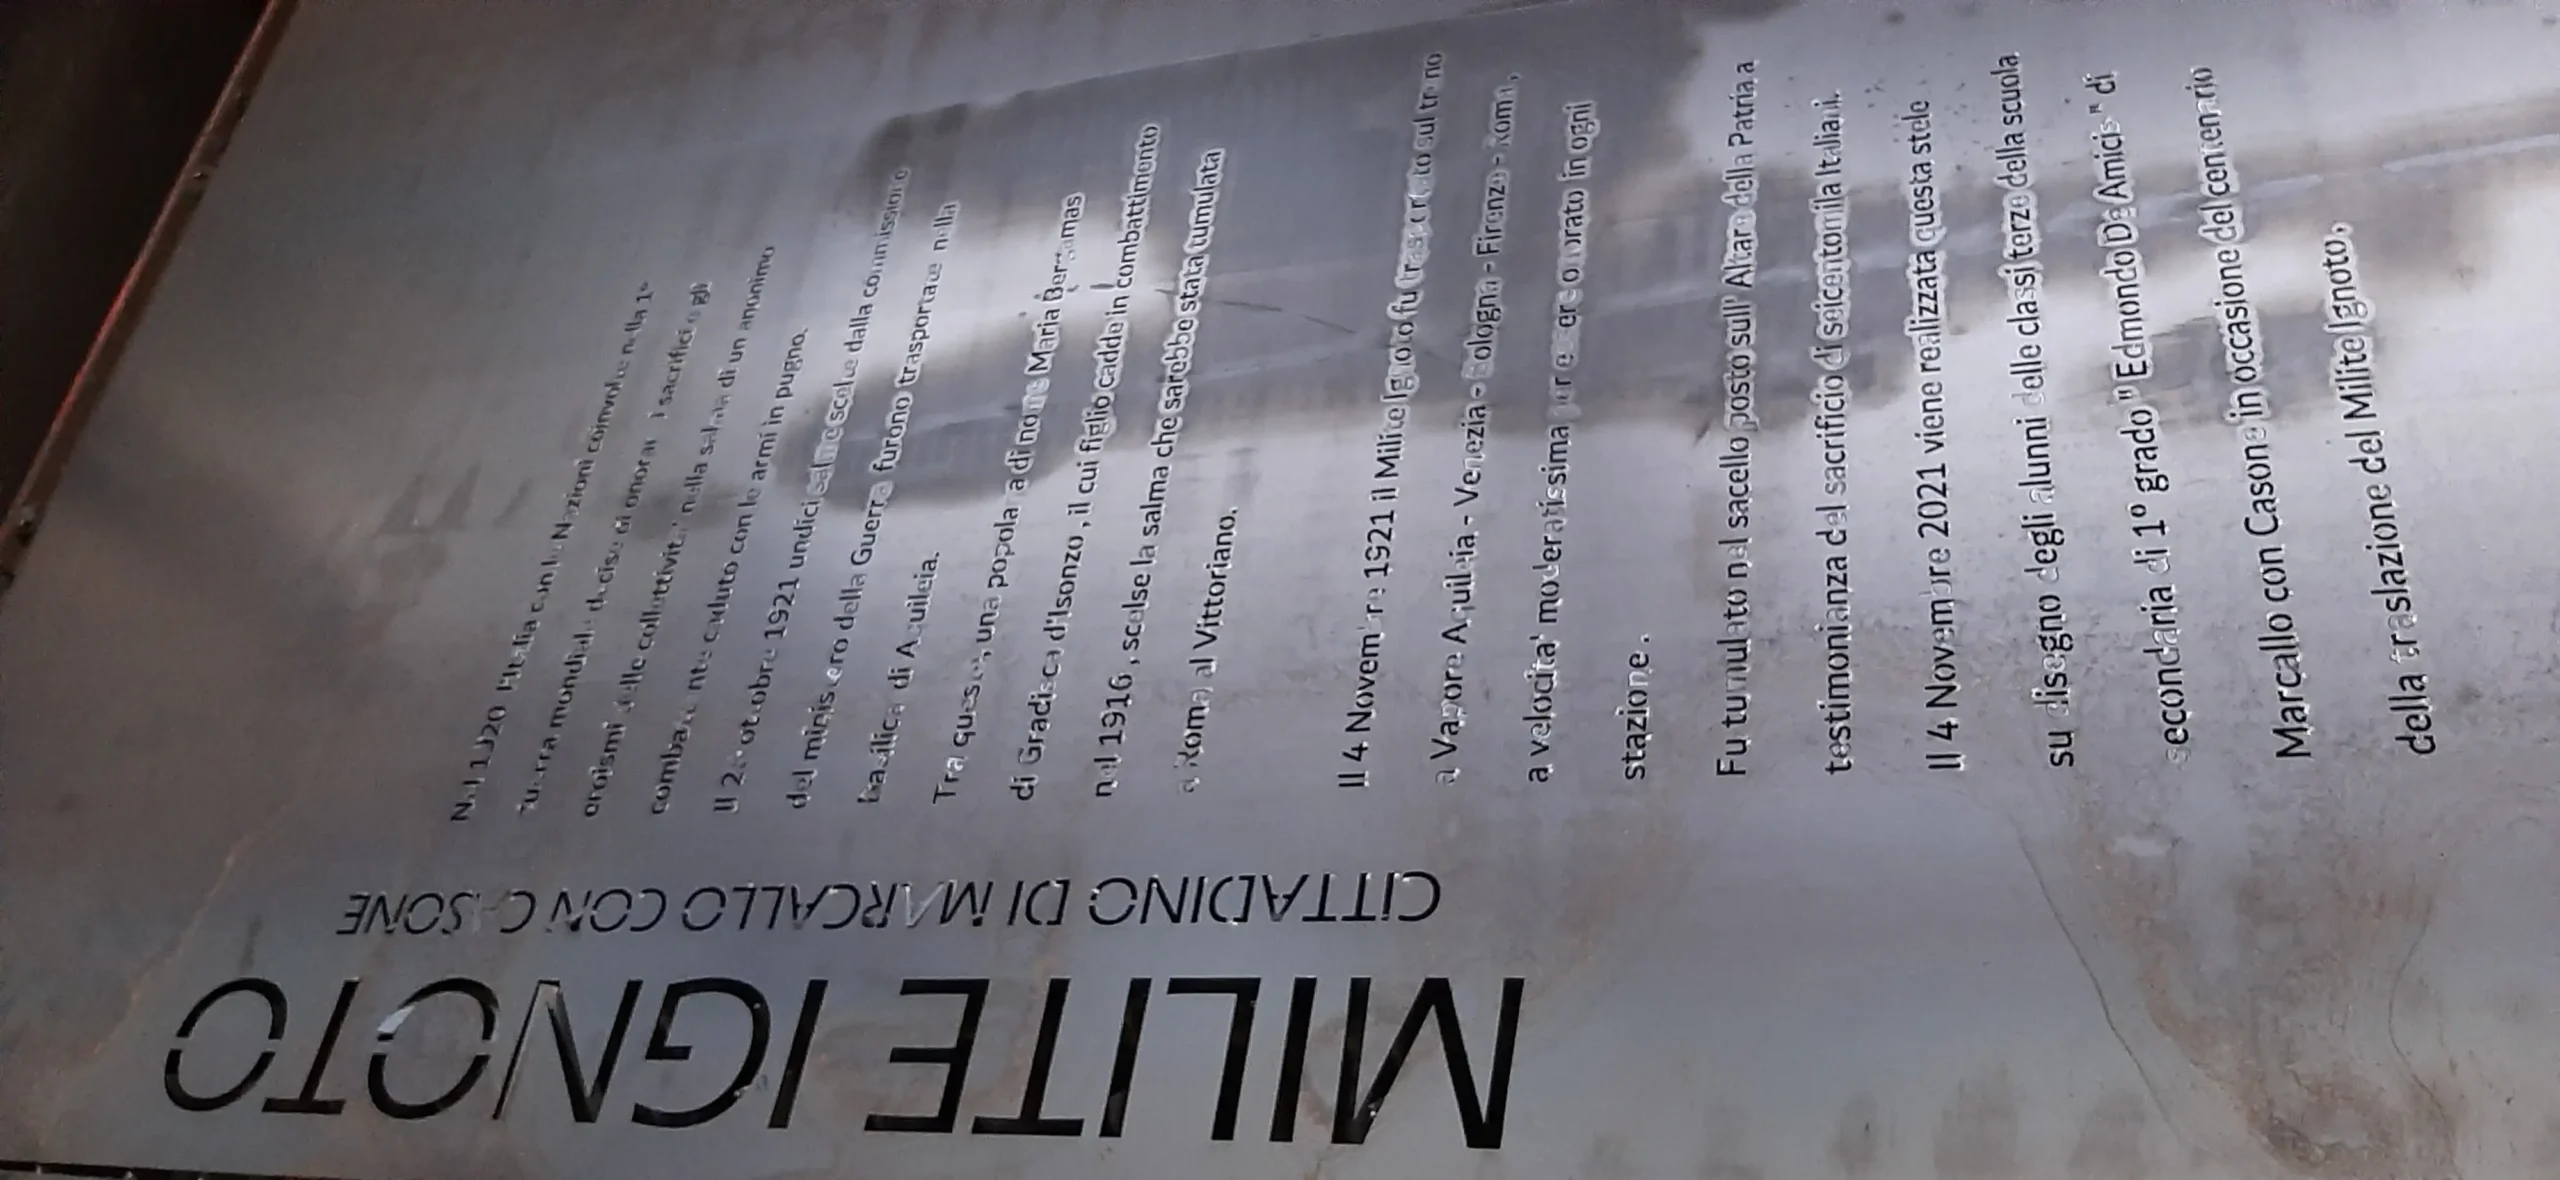 MILITE IGNOTO
CITTADINO DI MARCALLO CON CASONE
Nel 1920 l'Italia con le Nazioni coinvolte nella 1°
Guerra mondiale decise di onorare i sacrifici e gli
eroismi delle collettivita' nella salma di un anonimo
combattente caduto con le armi in pugno.
Il ottobre 1921 undici salme scelte dalla commissione
del ministero della Guerra furono trasportate nella
Basilica di Aquileia.
Tra queste, una popolana di nome Maria Bergamas
di Gradisca d'Isonzo , il cui figlio cadde in combattimento
nel 1916 , scelse la salma che sarebbe stata tumulata
a Roma al Vittoriano.
Il 4 Novembre 1921 il Milite Ignoto fu trasportato sul treno
a Vapore Aquileia - Venezia - Bologna - Firenze - Roma ,
a velocita' moderatissima per essere onorato in ogni
stazione .
Fu tumulato nel sacello posto sull' Altare della Patria a
testimonianza del sacrificio di seicentomila Italiani.
Il 4 Novembre 2021 viene realizzata questa stele
su disegno degli alunni delle classi terze della scuola
secondaria di 1° grado " Edmondo De Amicis " di
Marcallo con Casone in occasione del centenario
della traslazione del Milite Ignoto,